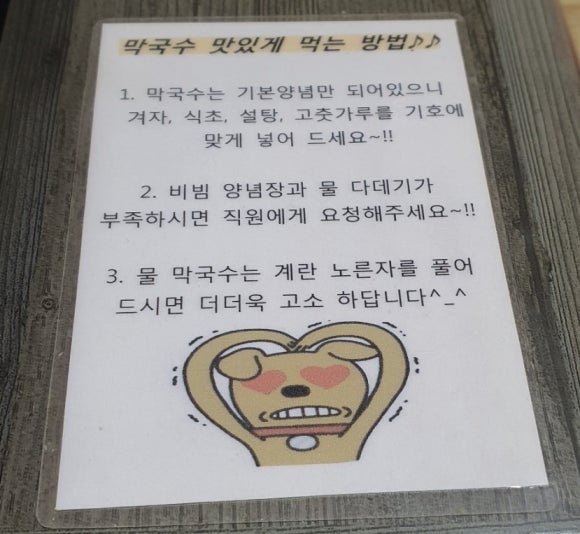 막국수 맛있게 먹는 방법♪♪
1. 막국수는 기본양념만 되어있으니
겨자, 식초, 설탕, 고춧가루를 기호에
맞게 넣어 드세요~!!
2. 비빔 양념장과 물 다데기가
부족하시면 직원에게 요청해주세요~!!
3. 물 막국수는 계란 노른자를 풀어
드시면 더더욱 고소 하답니다^_^